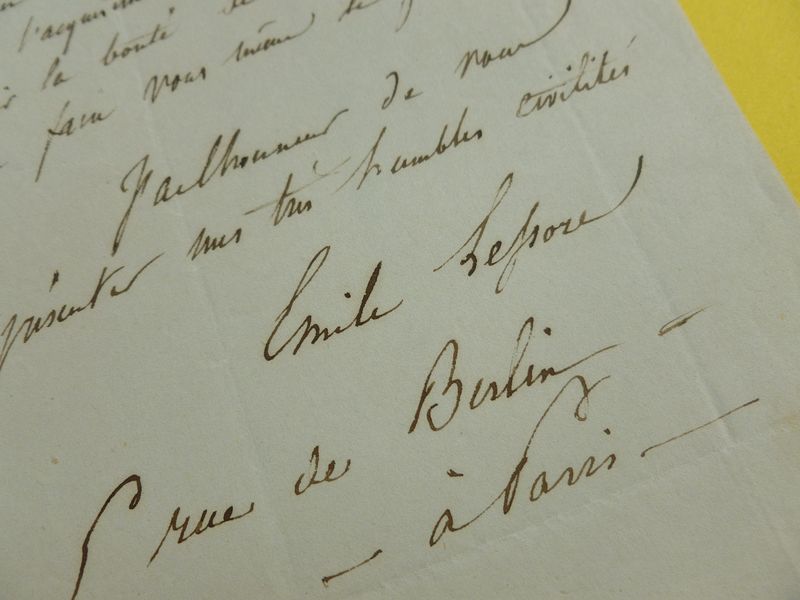 la bonté de
faire vous même
J'ai l'honneur de vous
présenter mes très humbles civilités
Emile Lessore
5 rue de Berlin
à Paris